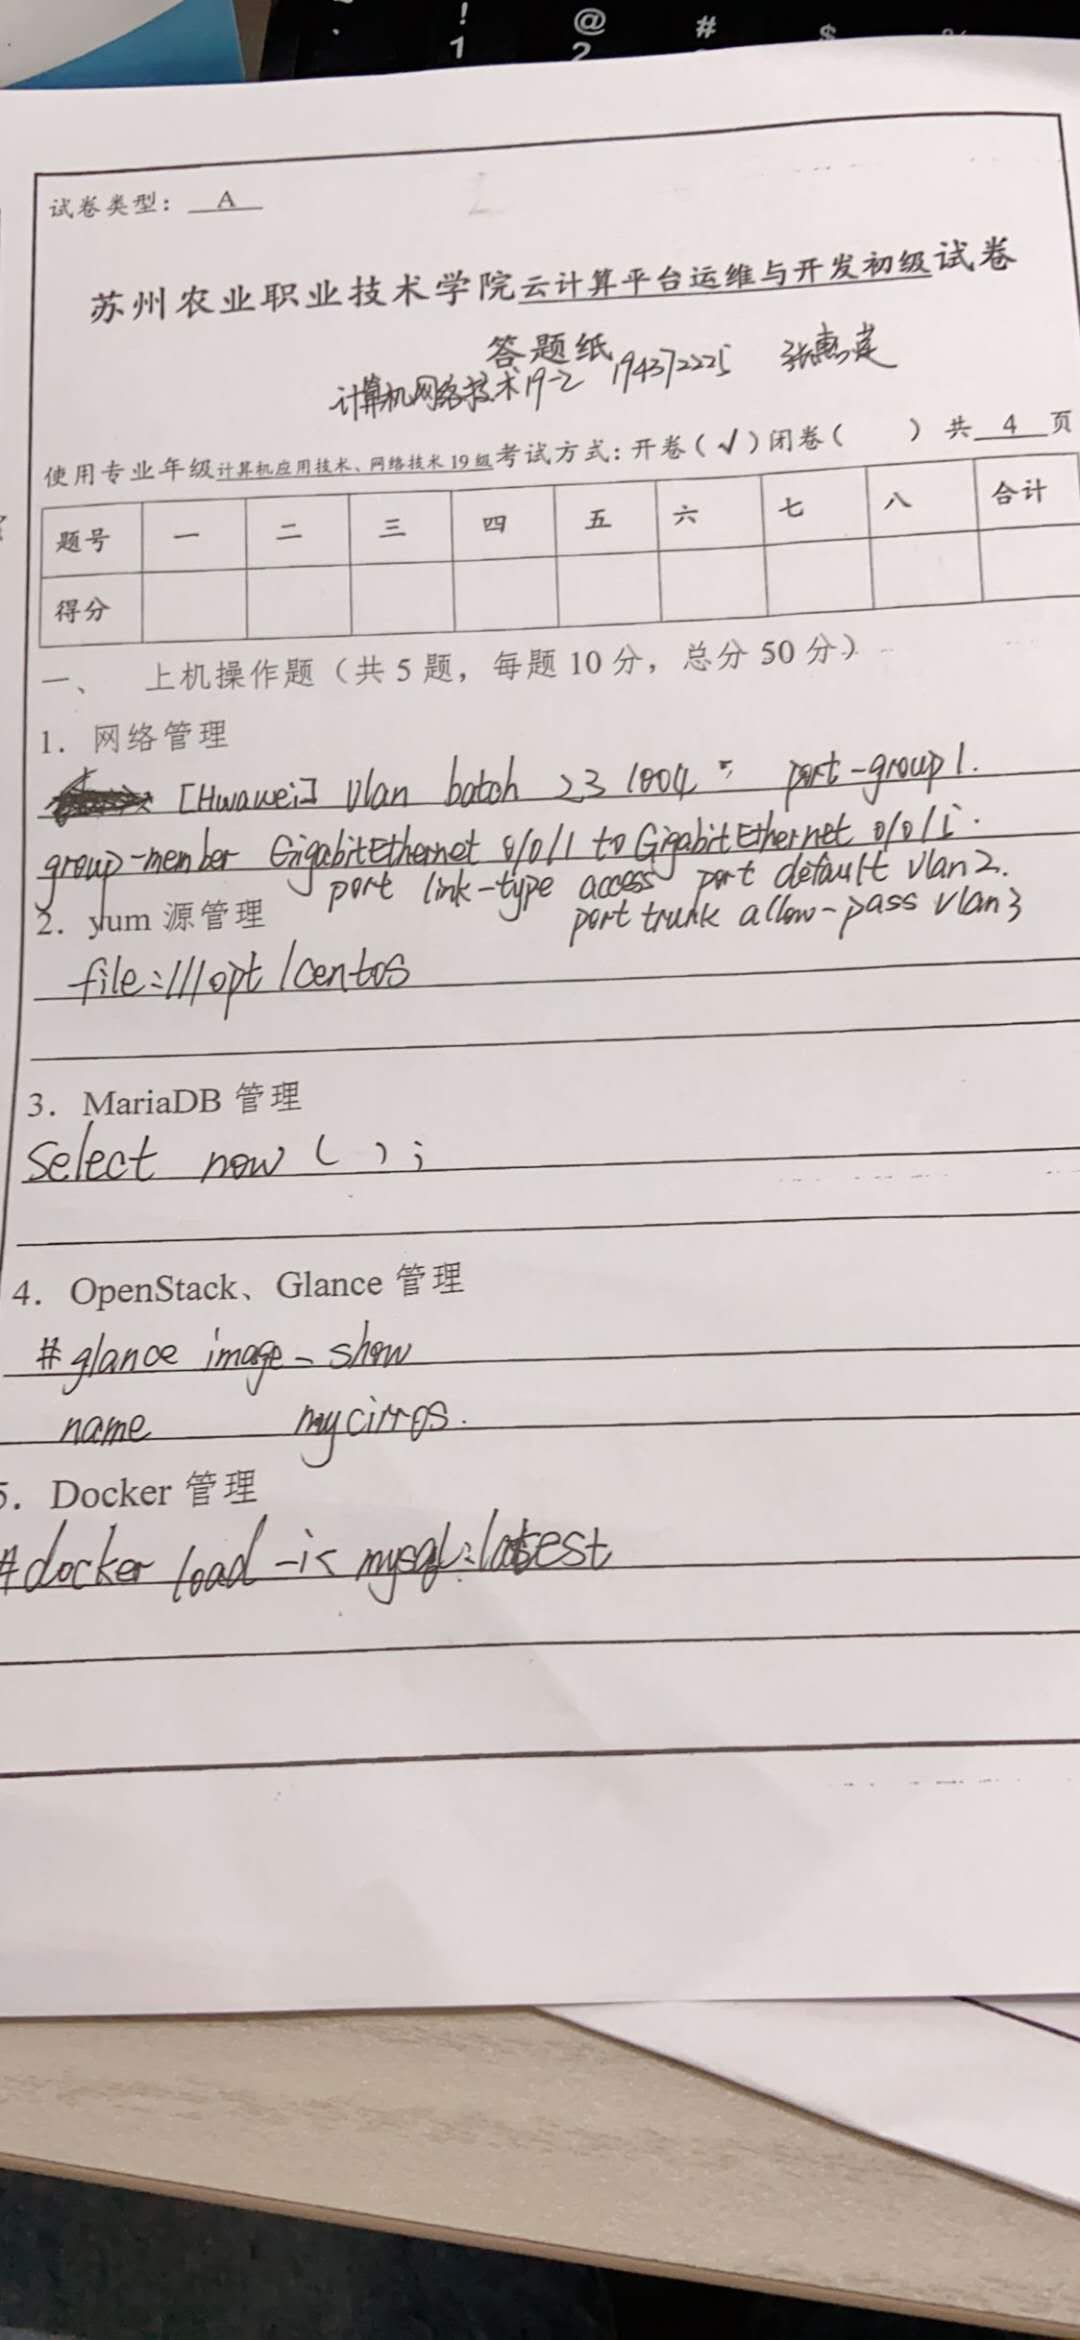 ! @ # $
1 2
试卷类型: A
苏州农业职业技术学院云计算平台运维与开发初级试卷
答题纸
计算机网络技术19-2 194372225 张惠莲
使用专业年级计算机应用技术、网络技术19级考试方式:开卷(√)闭卷( ) 共 4 页
题号 一 二 三 四 五 六 七 八 合计
得分
一、 上机操作题(共5题,每题10分,总分50分)
1. 网络管理
[Huawei] Vlan batch 23 1004 port-group 1.
group-member GigabitEthernet 0/0/1 to GigabitEthernet 0/0/
port link-type access port default vlan2.
2. yum 源管理 port trunk allow-pass vlan3
file:///opt/centos
3. MariaDB 管理
Select now ( ) ;
4. OpenStack、Glance 管理
#glance image-show
name mycirros.
5. Docker 管理
#docker load -i< mysql:latest